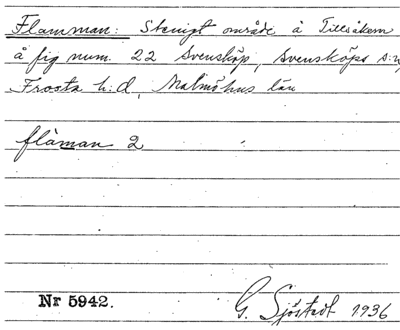 Flamman: Stenigt område å Tillsåkern
å fig num. 22 Svensköp, Svensköps s:n,
Frosta h:d, Malmöhus län
flåman 2
Nr 5942.
G. Sjöstedt 1936